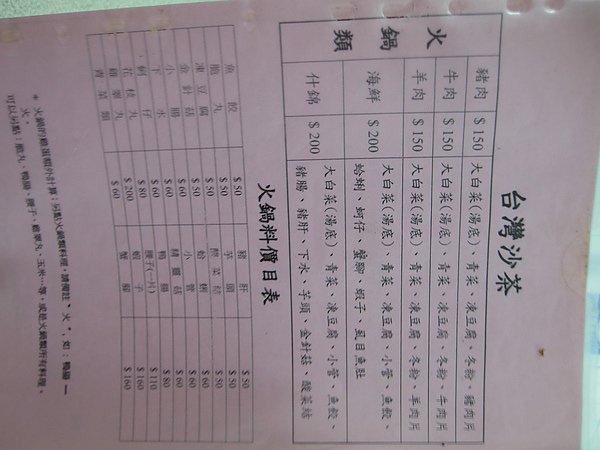 台灣沙茶
火鍋類
豬肉 $150 大白菜(湯底)、青菜、凍豆腐、冬粉、豬肉片
牛肉 $150 大白菜(湯底)、青菜、凍豆腐、冬粉、牛肉片
羊肉 $150 大白菜(湯底)、青菜、凍豆腐、冬粉、羊肉片
海鮮 $200 大白菜(湯底)、青菜、凍豆腐、小管、魚餃、
蛤蜊、蚵仔、蟹腳、蝦子、虱目魚肚
什錦 $200 大白菜(湯底)、青菜、凍豆腐、小管、魚餃、
豬腸、豬肝、下水、芋頭、金針菇、酸菜結
火鍋料價目表
魚餃 $50 豬肝 $50
脆丸 $50 芋頭 $50
凍豆腐 $50 酸菜結 $50
金針菇 $50 蛤蜊 $60
小腸 $60 小管 $60
下水 $60 精靈菇 $60
蚵仔 $80 鴨腸 $80
花枝丸 腰子(一片) $110
雞睪丸 $200 蝦子 $160
青菜類 $60 蟹腳 $160
* 火鍋的雞蛋額外計算；另點火鍋類料理，請備註〝火〞，如：鴨腸一
火。
可以另點：脆丸、鴨腸、腰子、雞睪丸、玉米…等，或是火鍋類所有料理。